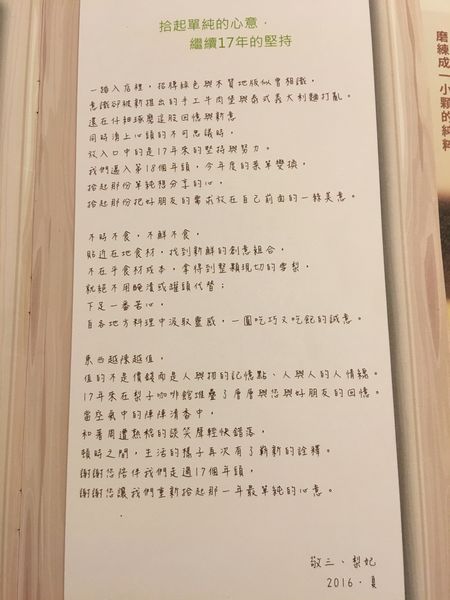 拾起單純的心意．
繼續17年的堅持
一踏入店裡，招牌綠色與木質地版似曾相識，
意識卻被新推出的手工牛肉堡與泰式義大利麵打亂。
還在仔細琢磨這股回憶與新意
同時湧上心頭的不可思議時，
放入口中的是17年來的堅持與努力。
我們邁入第18個年頭，今年度的菜單變換，
拾起那份單純想分享的心，
拾起那份把好朋友的需求放在自己前面的一絲美意。
不時不食，不鮮不食，
貼近在地食材，找到新鮮的創意組合，
不在乎食材成本，拿得到整顆現切的雪梨，
就絕不用醃漬或罐頭代替；
下足一番苦心，
自各地方料理中汲取靈感，一圓吃巧又吃飽的誠意。
東西越陳越值，
值的不是價錢而是人與物的記憶點、人與人的人情線。
17年來在梨子咖啡館堆疊了層層與您與好朋友的回憶。
當空氣中的陣陣清香中，
和著周遭熟稔的談笑聲輕快錯落，
頓時之間，生活的樣子再次有了嶄新的詮釋。
謝謝您陪伴我們走過17個年頭，
謝謝您讓我們重新拾起那一年最單純的心意。
敬三、梨妃
2016．夏
磨練成一小顆的純粹